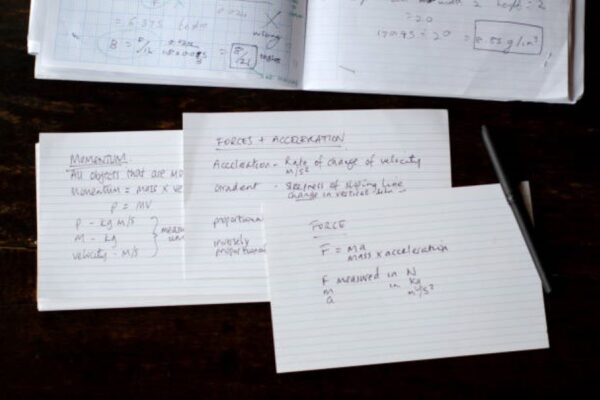 = 6.375
wrong
B =
= 8/21
= 20
= 20 = 8.55 g/cm³
MOMENTUM
All objects that are mo
Momentum = mass x ve
P = MV
P - kg m/s
M - kg
velocity - m/s
measu
un
FORCES + ACCELERATION
Acceleration - Rate of change of velocity
m/s²
Gradient - Steepness of sloping line
change in vertical
proportiona
inversely
proportiona
FORCE
F = ma
mass x acceleration
F measured in N
m in kg
a m/s²